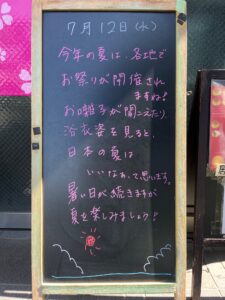 7月12日(水)
今年の夏は、各地で
お祭りが開催され
ますね!
お囃子が聞こえたり
浴衣姿を見ると、
日本の夏は
いいなぁ、って思います。
暑い日が続きますが
夏を楽しみましょう!